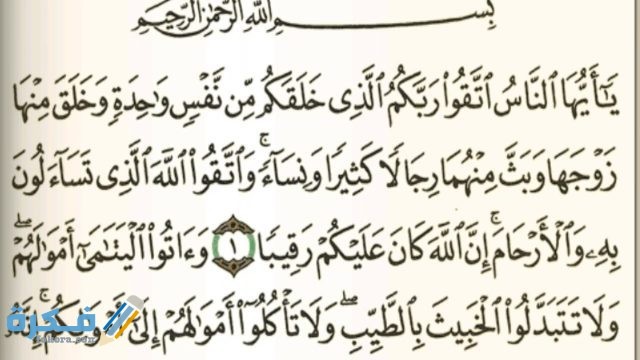 بِسْمِ ٱللَّهِ ٱلرَّحْمَٰنِ ٱلرَّحِيمِ
يَٰٓأَيُّهَا ٱلنَّاسُ ٱتَّقُوا۟ رَبَّكُمُ ٱلَّذِى خَلَقَكُم مِّن نَّفْسٍ وَٰحِدَةٍ وَخَلَقَ مِنْهَا
زَوْجَهَا وَبَثَّ مِنْهُمَا رِجَالًا كَثِيرًا وَنِسَآءً ۚ وَٱتَّقُوا۟ ٱللَّهَ ٱلَّذِى تَسَآءَلُونَ
بِهِۦ وَٱلْأَرْحَامَ ۚ إِنَّ ٱللَّهَ كَانَ عَلَيْكُمْ رَقِيبًا ١ وَءَاتُوا۟ ٱلْيَتَٰمَىٰٓ أَمْوَٰلَهُمْ ۖ
وَلَا تَتَبَدَّلُوا۟ ٱلْخَبِيثَ بِٱلطَّيِّبِ ۖ وَلَا تَأْكُلُوٓا۟ أَمْوَٰلَهُمْ إِلَىٰٓ أَمْوَٰلِكُمْ ۚ
فكرة
fekera.com